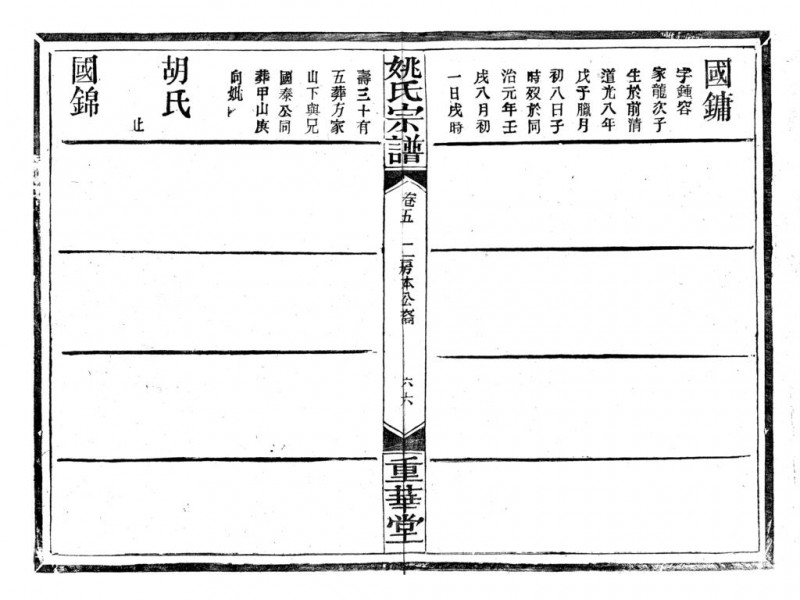 國鏞
字鍾容
家龍次子
生於前清
道光八年
戊子臘月
初八日子
時歿於同
治元年壬
戌八月初
一日戌時
姚氏宗譜
卷五
二房本公裔
六六
重華堂
壽三十有
五葬方家
山下與兄
國泰公同
葬甲山庚
向姚
胡氏
止
國錦